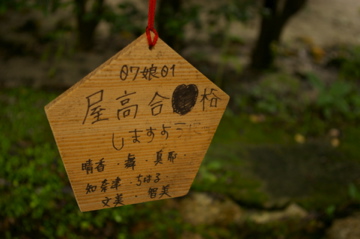 07娘01
屋高合格
しますように
晴香・舞・真那・
知奈津・ちほ子
文美・智美